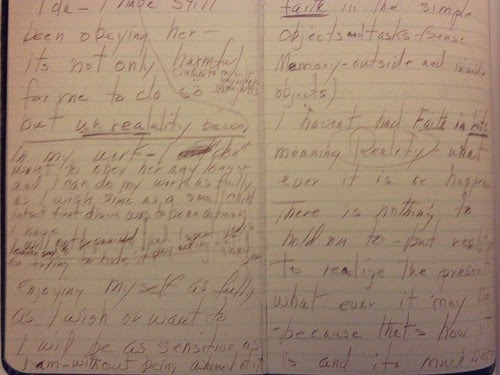 I do - I have still
been obeying her -
its not only harmful
for me to do so
but unreality because
In my work - I don't
want to obey her any longer
and I can do my work as fully
as I wish since as a small child
intact first desire was to be an actress
I have
to hide it
enjoying myself as fully
as I wish or want to
I will be as sensitive as
I am - without being ashamed of it
faith in the simple
objects and tasks - (Sense
Memory - outside and inside
objects)
I haven't had Faith in
meaning (reality) - what
ever it is or happen
There is nothing to
hold on to - but
to realize the present
what ever it may be
- because that's how
is and its much